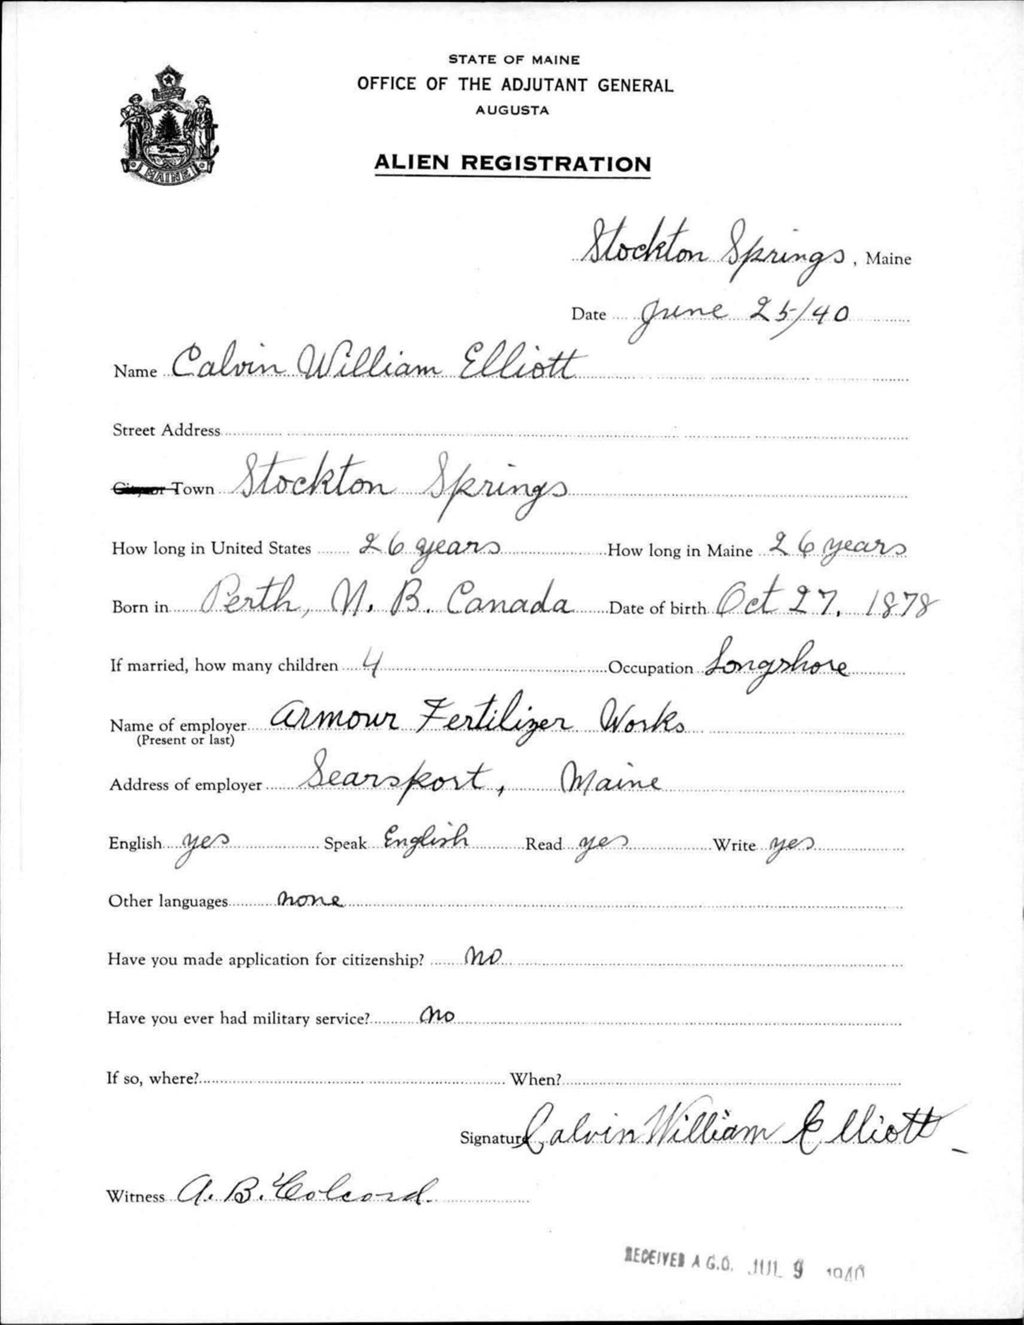 STATE OF MAINE
OFFICE OF THE ADJUTANT GENERAL
AUGUSTA
ALIEN REGISTRATION
MAINE
Stockton Springs, Maine
Date June 25/40
Name Calvin William Elliott
Street Address
City or Town Stockton Springs
How long in United States 26 years How long in Maine 26 years
Born in Perth, N. B. Canada Date of birth Oct 27, 1878
If married, how many children 4 Occupation Longshore
Name of employer Armour Fertilizer Works
(Present or last)
Address of employer Searsport, Maine
English yes Speak English Read yes Write yes
Other languages none
Have you made application for citizenship? no
Have you ever had military service? no
If so, where? When?
Signature Calvin William Elliott
Witness A. B. Colcord
RECEIVED A G.O. JUL 9 1940